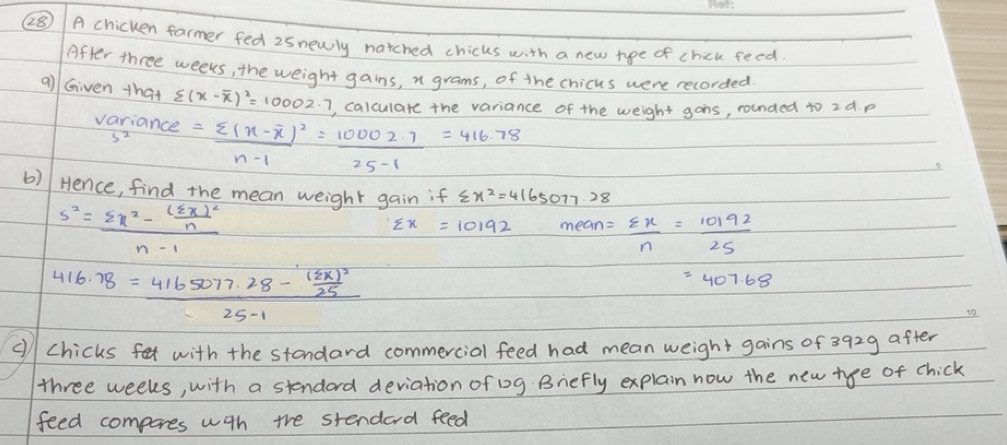 28 A chicken farmer fed 25 newly hatched chicks with a new type of chick feed.
After three weeks, the weight gains, x grams, of the chicks were recorded.
a) Given that Σ(x-x̄)² = 10002.7, calculate the variance of the weight gains, rounded to 2 d.p
variance = Σ(x-x̄)² = 10002.7 = 416.78
s² n-1 25-1
b) Hence, find the mean weight gain if Σx²=4165077.28
s² = Σx² - (Σx)²/n Σx = 10192 mean = Σx = 10192
n-1 n 25
416.78 = 4165077.28 - (Σx)²/25 = 407.68
25-1
10
c) Chicks fet with the standard commercial feed had mean weight gains of 392g after
three weeks, with a standard deviation of g. Briefly explain how the new type of chick
feed compares with the standard feed